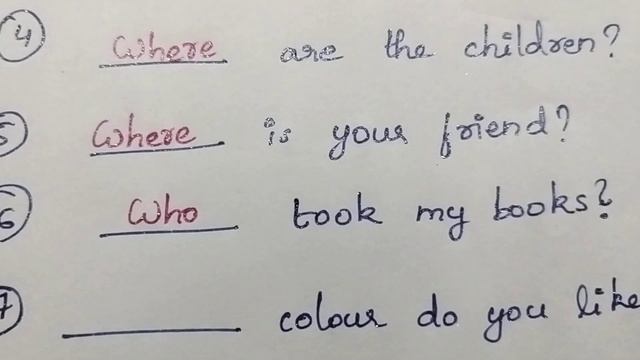 4 Where are the children?
5 Where is your friend?
6 Who took my books?
7 ________ colour do you like